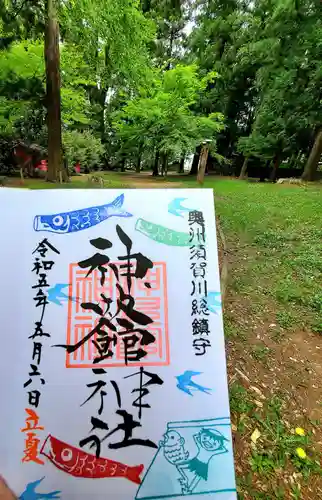 奥州須賀川総鎮守
神炊館神社
令和五年五月六日
立夏